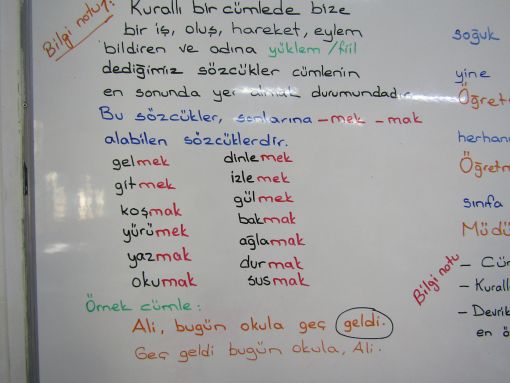 Bilgi notu:
Kurallı bir cümlede bize
bir iş, oluş, hareket, eylem
bildiren ve adına yüklem/fiil
dediğimiz sözcükler cümlenin
en sonunda yer almak durumundadır.
Bu sözcükler, sonlarına -mek -mak
alabilen sözcüklerdir.
gelmek
gitmek
koşmak
yürümek
yazmak
okumak
dinlemek
izlemek
gülmek
bakmak
ağlamak
durmak
susmak
Örnek cümle:
Ali, bugün okula geç geldi.
Geç geldi bugün okula, Ali.
soğuk
yine
Öğret
herhan
Öğretm
sınfa
Müdü
Bilgi notu
- Cü
- Kurall
- Devrik
en ö